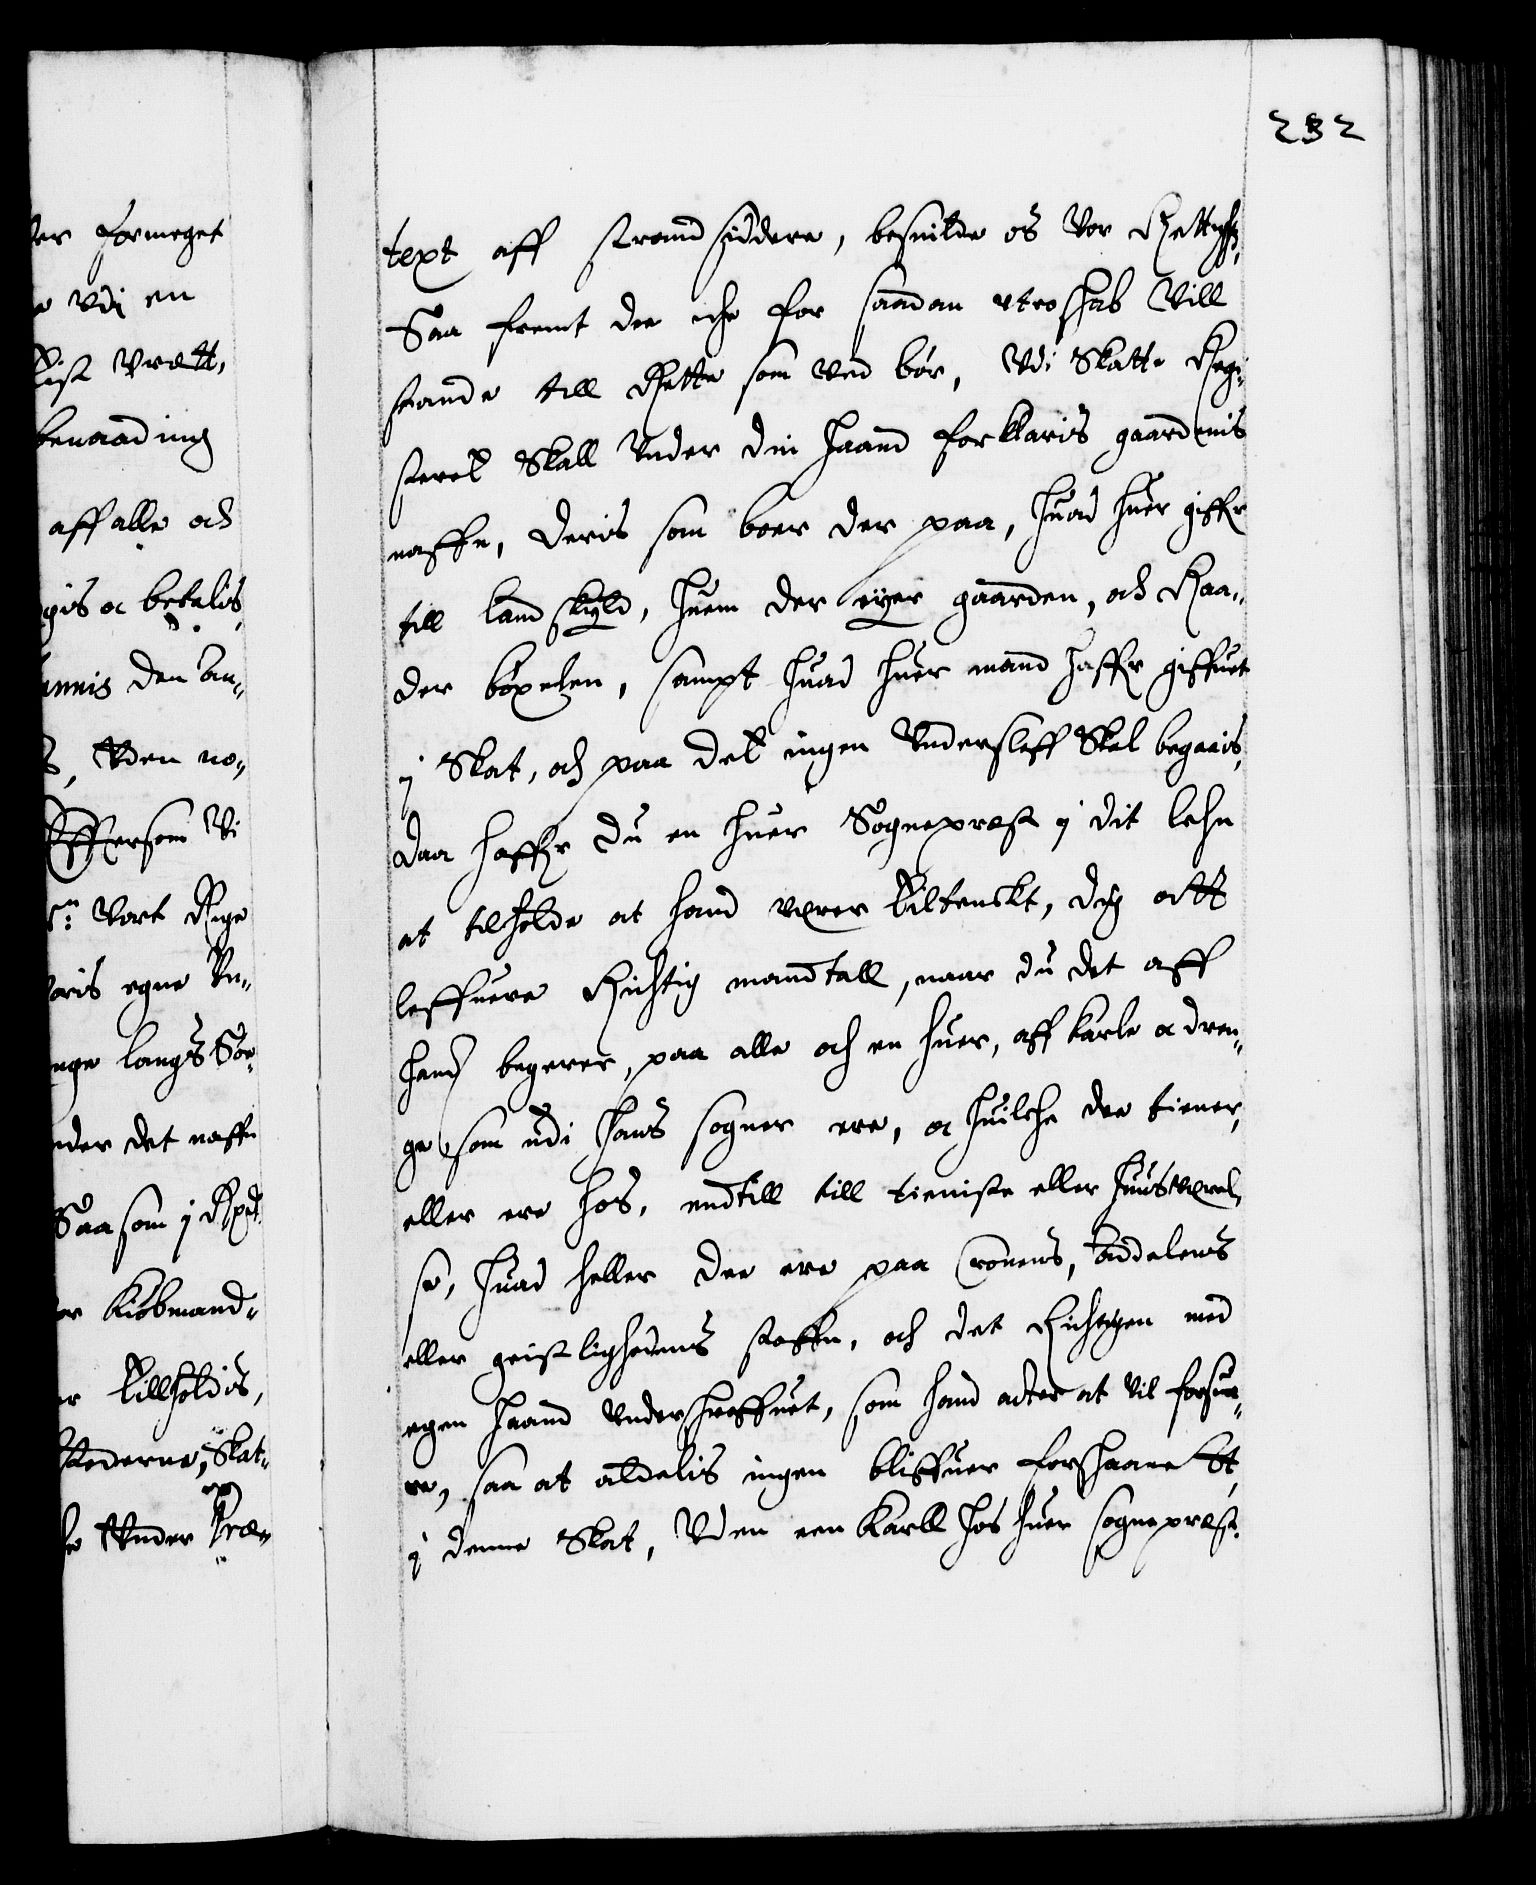 232
ter formeget
e vdj en
list vrett,
benaading
aff alle och
gis oc betalis,
annis den an-
s, Vden no-
Effersom Vi
Vort Rige
oris egne Vn-
nge langs Söe-
nder det naffn
Saa som j
or Kiöbmand-
er tillholdis,
stederne, Skat-
Vnder Præ-
text aff strandsiddere, besuilde os Vor Rettighed,
Saa fremt de iche for saadan vtroskab Vill
stande till Rette som ved bör, Vdi Skatte Regi-
steret Skall Vnder din haand forklaris gaardenis
naffn, deris som boer der paa, huad huer giffr
till landskyld, huem der eyer gaarden, och Raa-
der böxelen, sampt huad huer mand haffr giffuet
j Skat, och paa det ingen Vnderslæff Skal begaais,
daa haffr du en huer Sognepræst j dit lehn
at tilholde at hand verer tiltenckt, dig at
leffuere Richtig mandtall, naar du det aff
hand begerer, paa alle och en huer, aff karle oc dren-
ge som udi hans sogner ere, oc huilche de tiener,
eller ere hos, endtill till tieniste eller huusverel-
se, huad heller de ere paa Cronens, addelens
eller geistlighedens staffn, och det Richtigen med
egen haand vnderskreffuet, som hand acter at vil forsua-
re, saa at aldelis ingen bliffuer forskaanet
j denne Skat, Vden een Karll hos huer sognepræst.